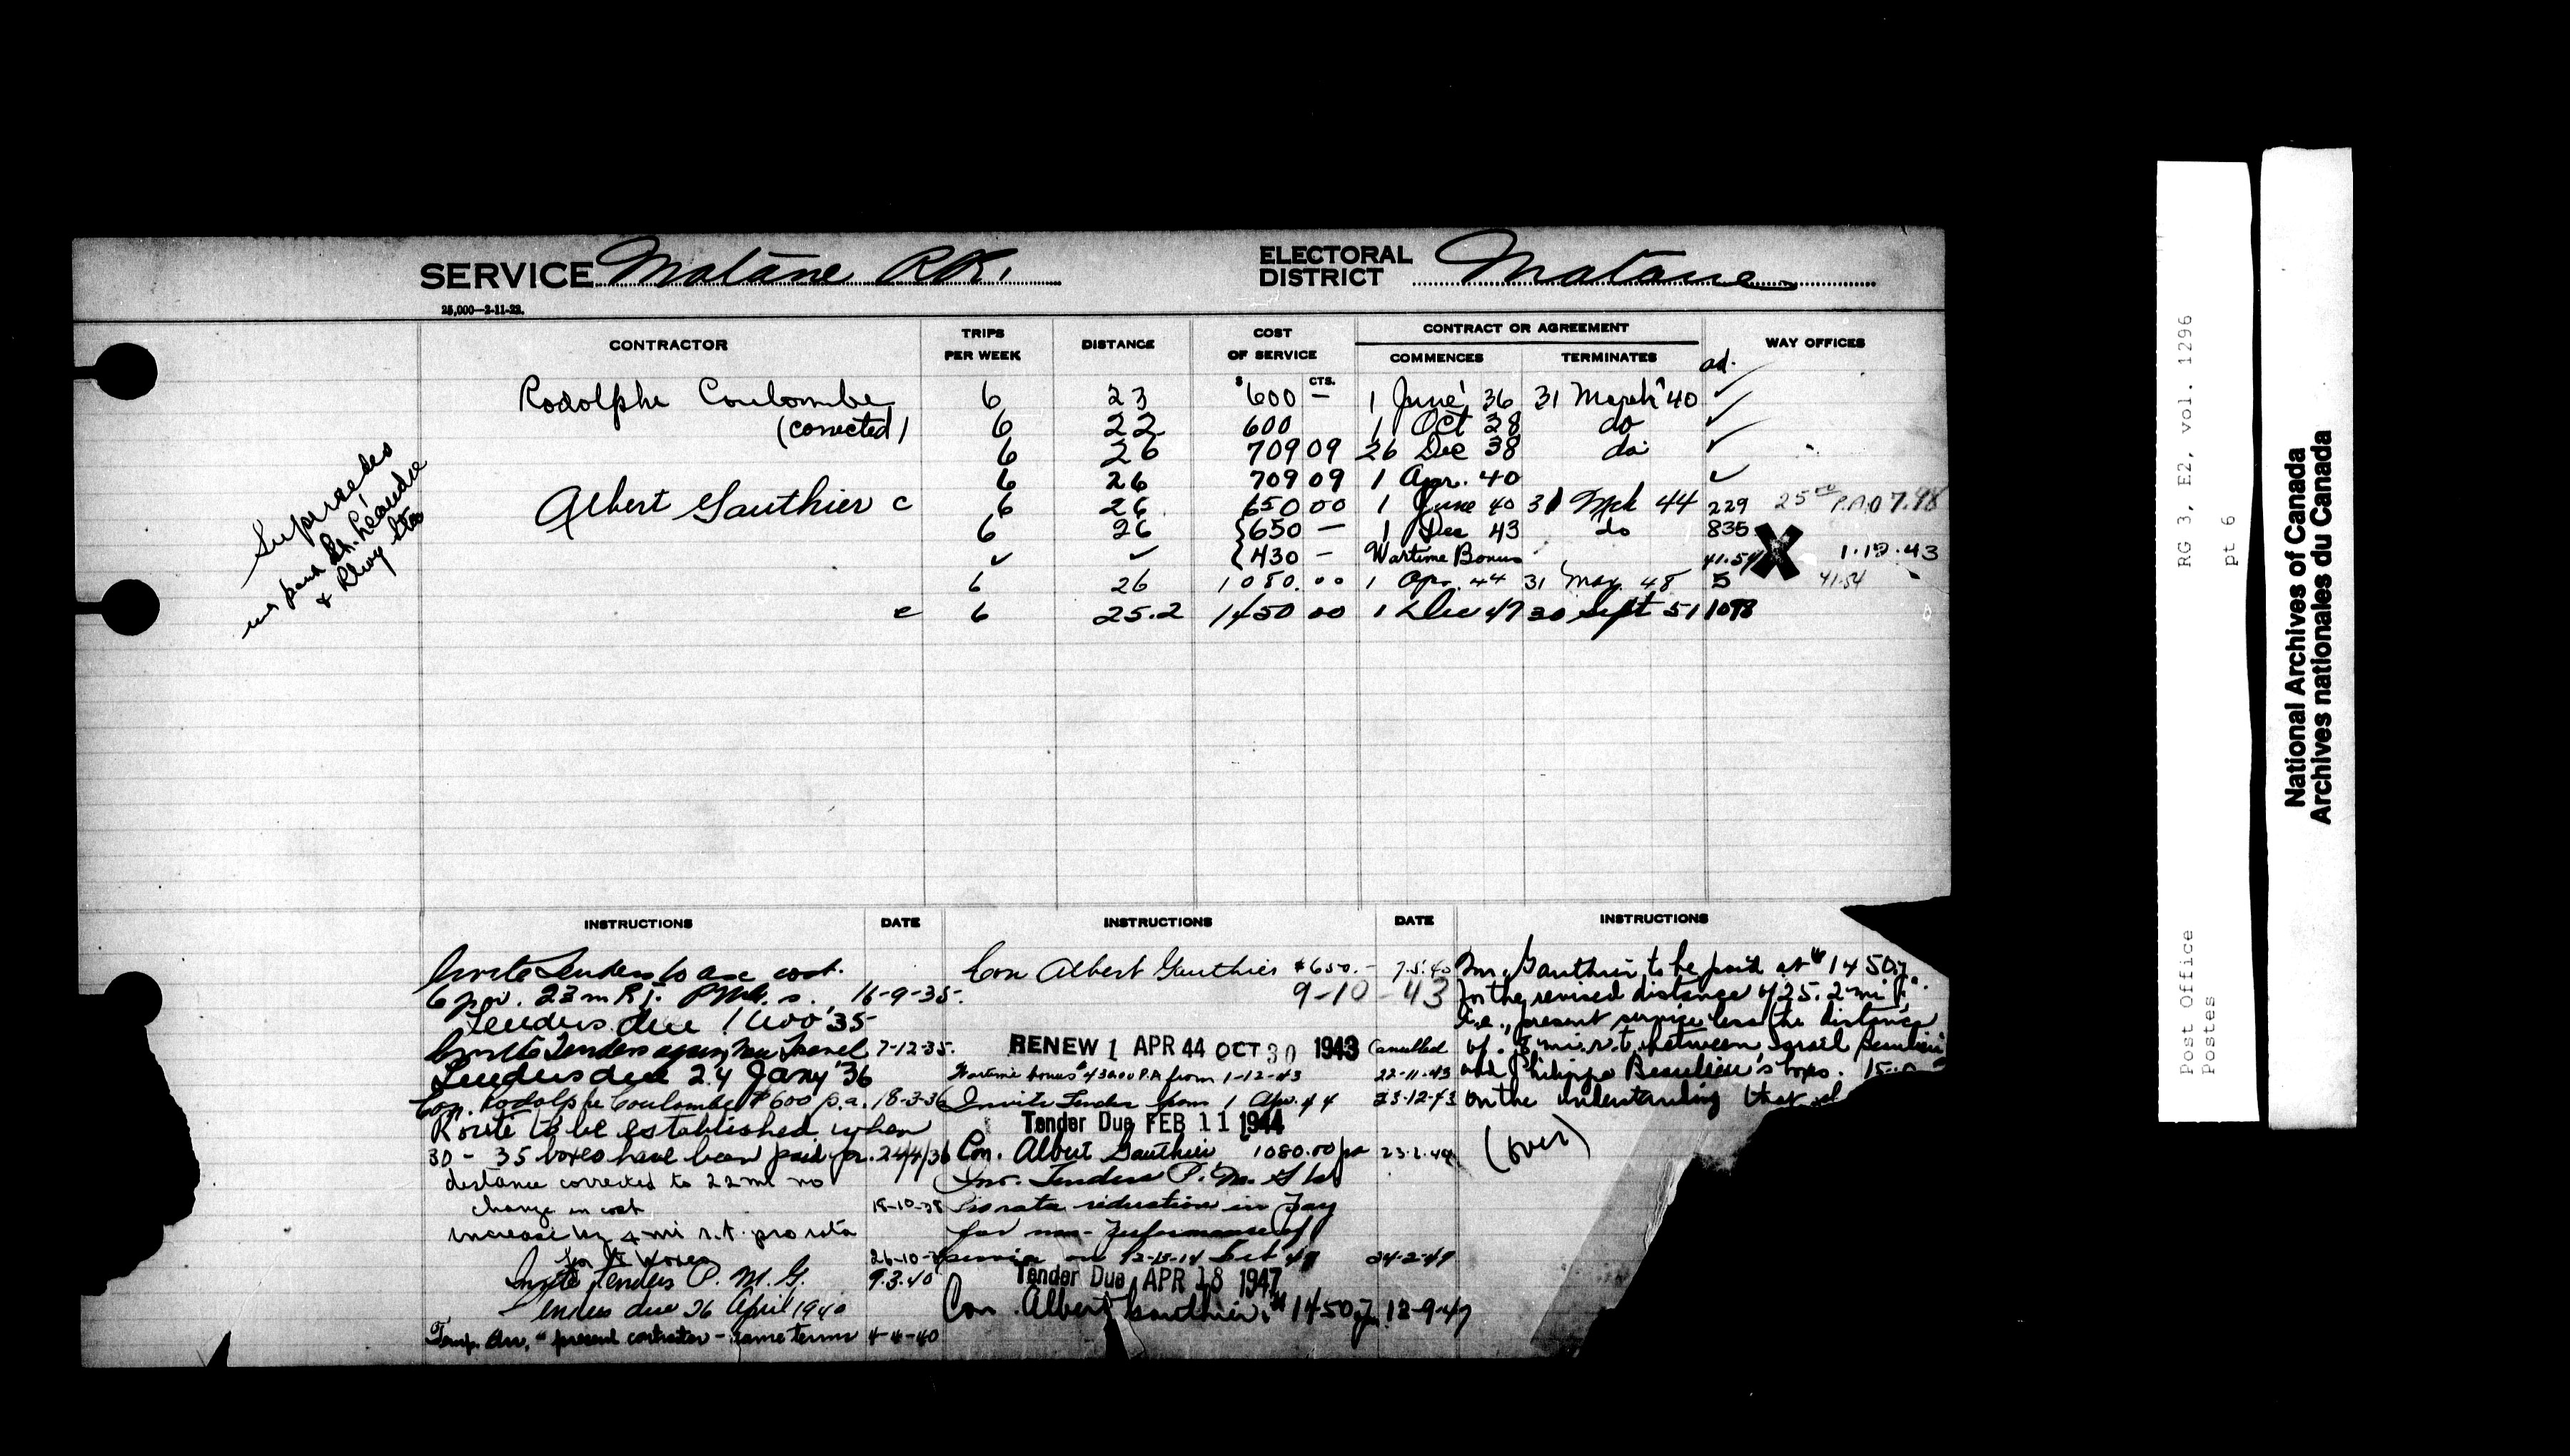 SERVICE Matane R.R. ELECTORAL DISTRICT Matane
25,000—2-11-22.
CONTRACTOR TRIPS PER WEEK DISTANCE COST OF SERVICE CONTRACT OR AGREEMENT COMMENCES TERMINATES WAY OFFICES
$ CTS. ad.
Rodolphe Coulombe 6 23 600 — 1 June 36 31 March 40 ✓
(corrected) 6 22 600 1 Oct 38 do ✓
6 26 709 09 26 Dec 38 do ✓
6 26 709 09 1 Apr. 40 ✓
Albert Gauthier c 6 26 650 00 1 June 40 31 Mch 44 229 25 P.A.O 7.98
6 26 {650 — 1 Dec 43 do 835 X
✓ ✓ {430 — Wartime Bonus 41.54 1.12.43
6 26 1080.00 1 Apr. 44 31 May 48 5 41.54
c 6 25.2 1450 00 1 Dec 47 30 Sept 51 1098
Supersedes
St. Léandre
& Rlwy Sta
INSTRUCTIONS DATE
Invite Tenders to asc cost.
6 22 m R.T. P.M.G. 16-9-35.
Tenders due 1 Nov '35
Invite Tenders again 7-12-35.
Tenders due 24 Jany '36
Con. Rodolphe Coulombe $600 p.a. 18-3-36
Route to be established when
30 - 35 boxes have been paid for. 24/4/36
distance corrected to 22 mi no
change in cost 18-10-38
increase by 4 mi r.t. pro rata
26-10-38
Invite Tenders P. M. G. 9.3.40
Tenders due 26 April 1940
Temp. Arr. present contractor - same terms 4-4-40
INSTRUCTIONS DATE
Con Albert Gauthier $650.- 7.5.40
9-10-43
RENEW 1 APR 44 OCT 30 1943 Cancelled
Wartime bonus $430.00 P.A. from 1-12-43 22-11-43
Invite Tenders from 1 Apr. 44 23-12-43
Tender Due FEB 11 1944
Con. Albert Gauthier 1080.00 pa 23.2.44
Inv. Tenders P. M. G.
Prorata reduction in Pay
for non-performance of
service on 12-13-14 Feb 47 24-2-47
Tender Due APR 18 1947
Con. Albert Gauthier $1450 12-9-47
INSTRUCTIONS
Mr. Gauthier to be paid at $1450
for the revised distance of 25.2 mi
i.e., present service less the distance
of .8 mi. r.t. between Israel Beaulieu
and Philippe Beaulieu's boxes.
on the understanding that
(over)
Post Office
Postes
RG 3, E2, vol. 1296
pt 6
National Archives of Canada
Archives nationales du Canada